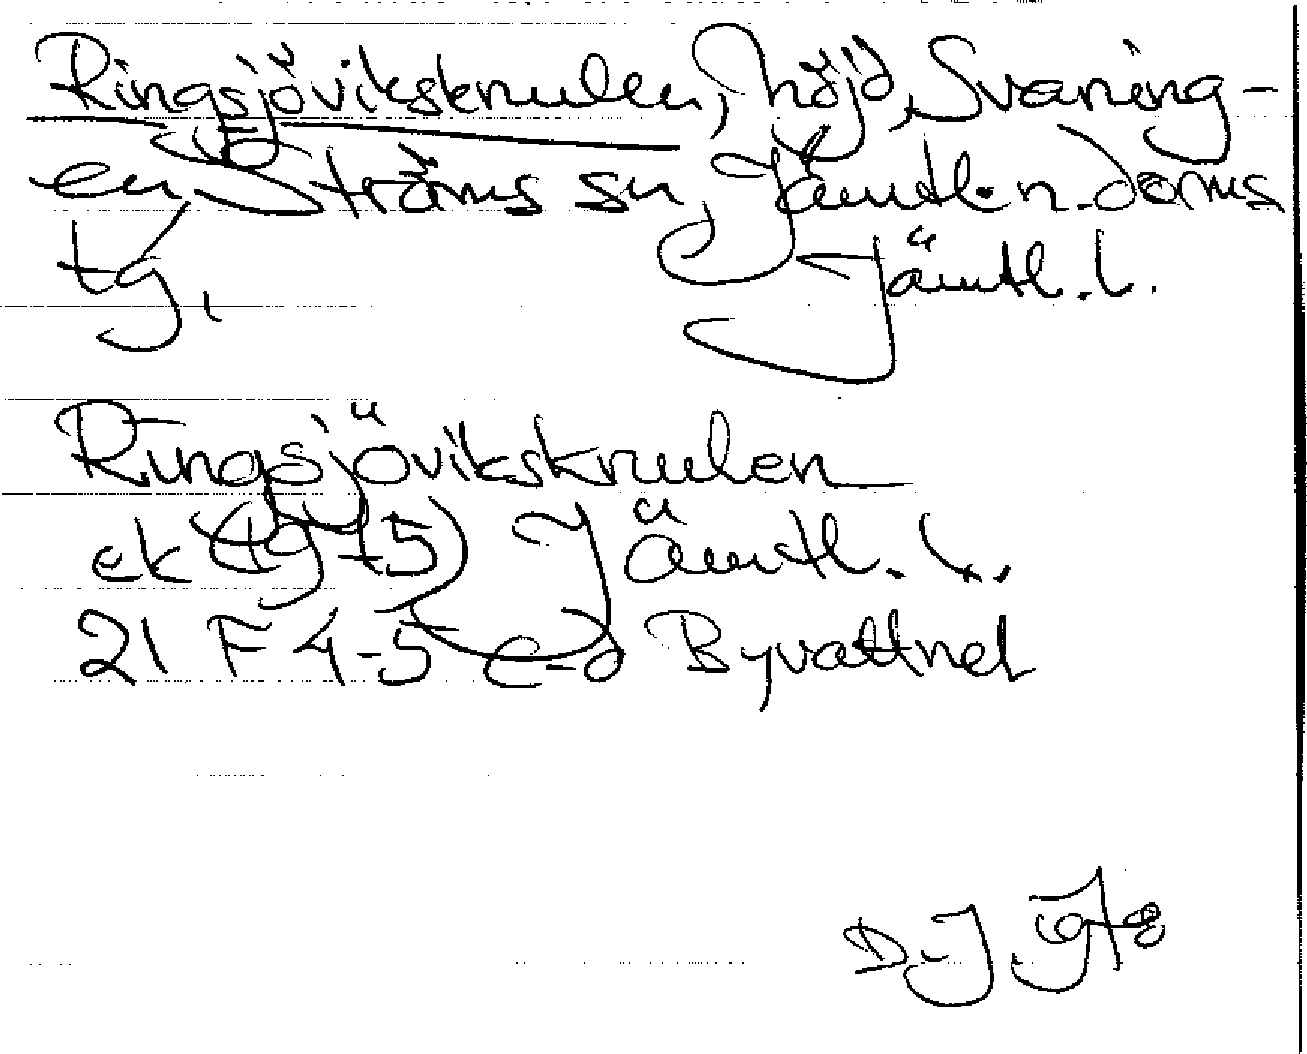 Ringsjöviksknulen, höjd, Svaning-
en Ströms sn Jämtl. n. doms
tg, Jämtl. l.
Ringsjöviksknulen
ek (tg 75) Jämtl. l.
21 F 4-5 c-d Byvattnet